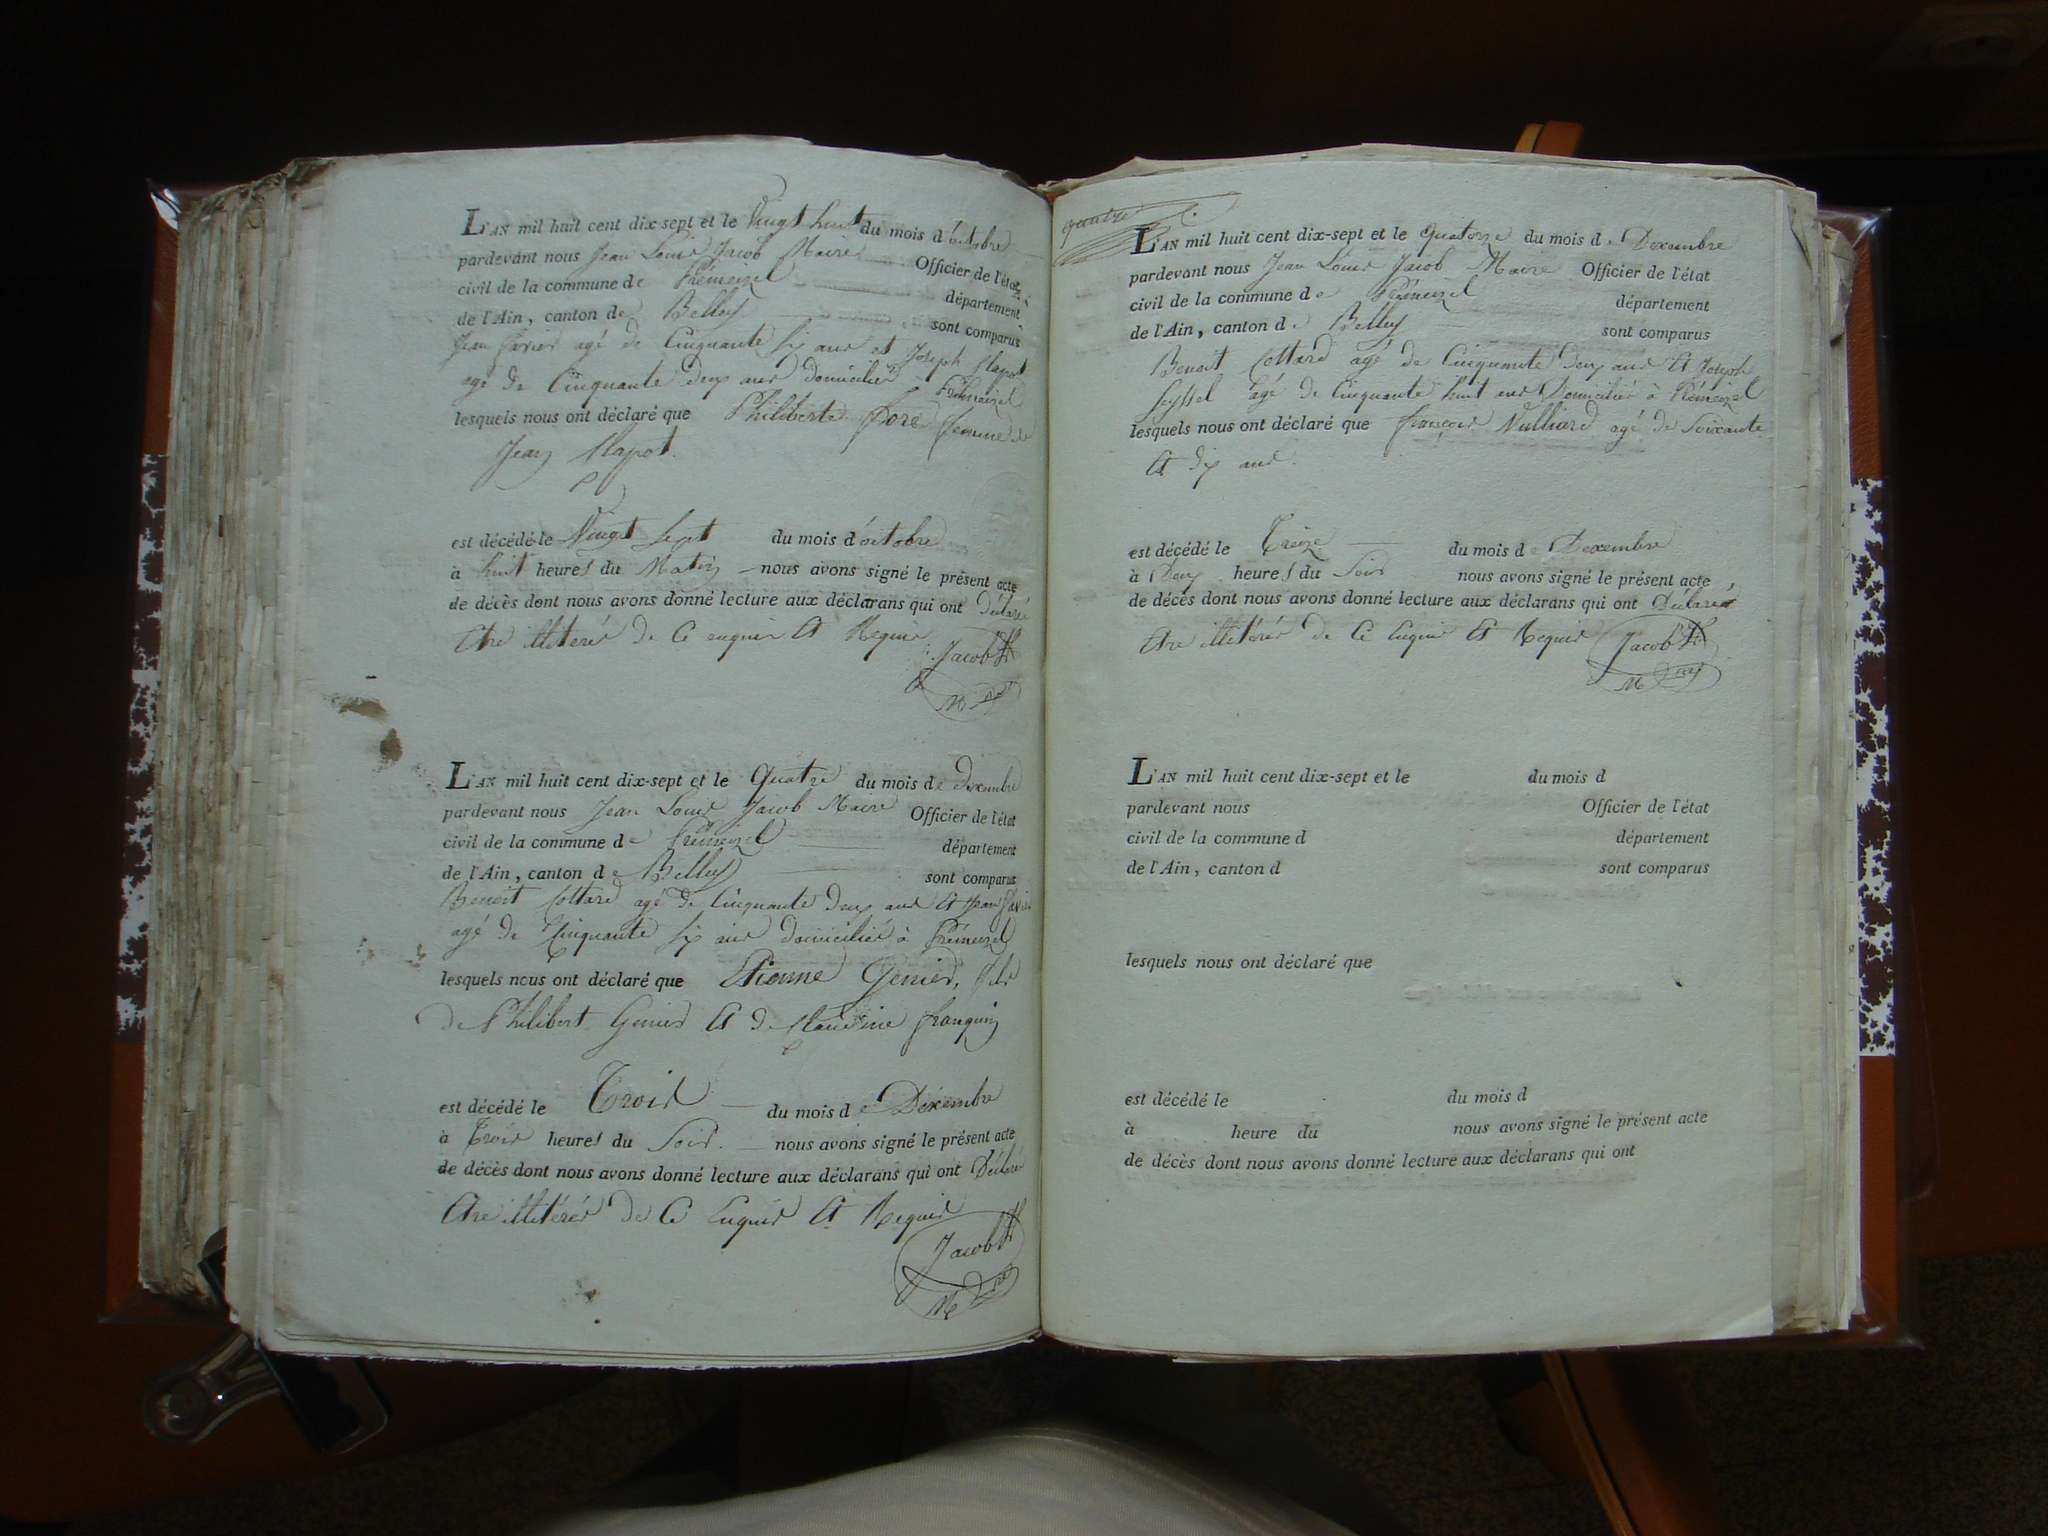 L'AN mil huit cent dix-sept et le Vingt huit du mois d'octobre
pardevant nous Jean Louis Jacob Maire Officier de l'état
civil de la commune de Prémeizel département
de l'Ain, canton de Belley sont comparus
Jean agé de Cinquante Six ans et Joseph Clapot
agé de Cinquante deux ans domicilié à Prémeizel
lesquels nous ont déclaré que Philiberte femme de
Jean Clapot.
est décédé le Vingt Sept du mois d'octobre
à huit heures du Matin nous avons signé le présent acte
de décès dont nous avons donné lecture aux déclarans qui ont Déclaré
Etre illitérés de Ce enquis Et Requis
Jacob
L'AN mil huit cent dix-sept et le Quatre du mois de Dexembre
pardevant nous Jean Louis Jacob Maire Officier de l'état
civil de la commune de Prémeizel département
de l'Ain, canton de Belley sont comparus
Benoit Cottard agé de Cinquante deux ans Et Jean
agé de Cinquante Six ans domicilié à Prémeizel
lesquels nous ont déclaré que Etienne Genier, fils
de Philibert Genier Et de Claudine franquin
est décédé le Trois du mois de Dexembre
à Trois heures du Soir. nous avons signé le présent acte
de décès dont nous avons donné lecture aux déclarans qui ont Déclaré
Etre illitérés de Ce Enquis Et Requis
Jacob
quatre
L'AN mil huit cent dix-sept et le Quatorze du mois de Dexembre
pardevant nous Jean Louis Jacob Maire Officier de l'état
civil de la commune de Prémeizel département
de l'Ain, canton de Belley sont comparus
Benoit Cottard agé de Cinquante deux ans Et Joseph
Seyssel agé de Cinquante huit ans Domicilié à Prémeizel
lesquels nous ont déclaré que françois Vulliard agé de Soixante
Et dix ans.
est décédé le Treize du mois de Dexembre
à Deux heures du Soir nous avons signé le présent acte,
de décès dont nous avons donné lecture aux déclarans qui ont Déclaré
Etre illitérés de Ce Enquis Et Requis
Jacob
L'AN mil huit cent dix-sept et le du mois d
pardevant nous Officier de l'état
civil de la commune d département
de l'Ain, canton d sont comparus
lesquels nous ont déclaré que
est décédé le du mois d
à heure du nous avons signé le présent acte
de décès dont nous avons donné lecture aux déclarans qui ont